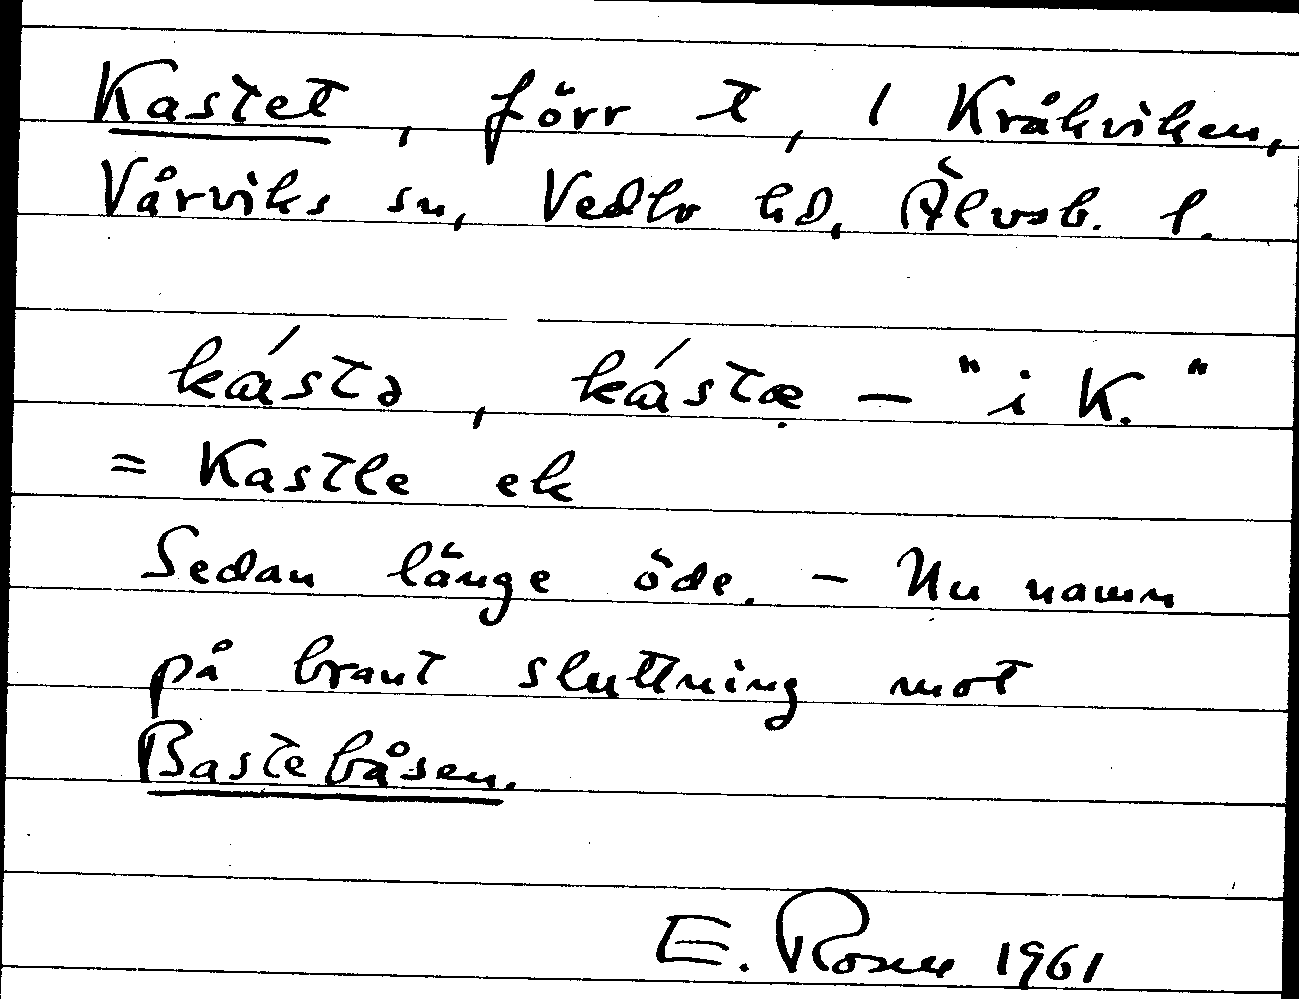 Kastet, förr t, 1 Kråkviken,
Vårviks sn, Vedbo hd, Älvsb. l.
kástə, kástæ̣ – "i K."
= Kastle ek
Sedan länge öde. – Nu namn
på brant sluttning mot
Bastebåsen.
E. Rosén 1961